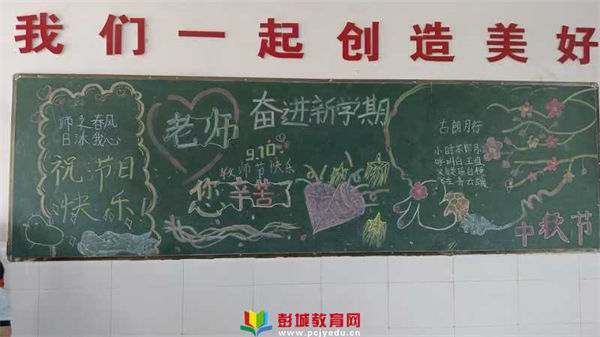 我们一起创造美好
师之春风
日沐我心
祝节日
快乐!
老师
您辛苦了
奋进新学期
9.10
教师节快乐
古朗月行
小时不识月
呼作白玉盘
又疑瑶台镜
飞在青云端
中秋节
彭城教育网
www.pcjyedu.cn